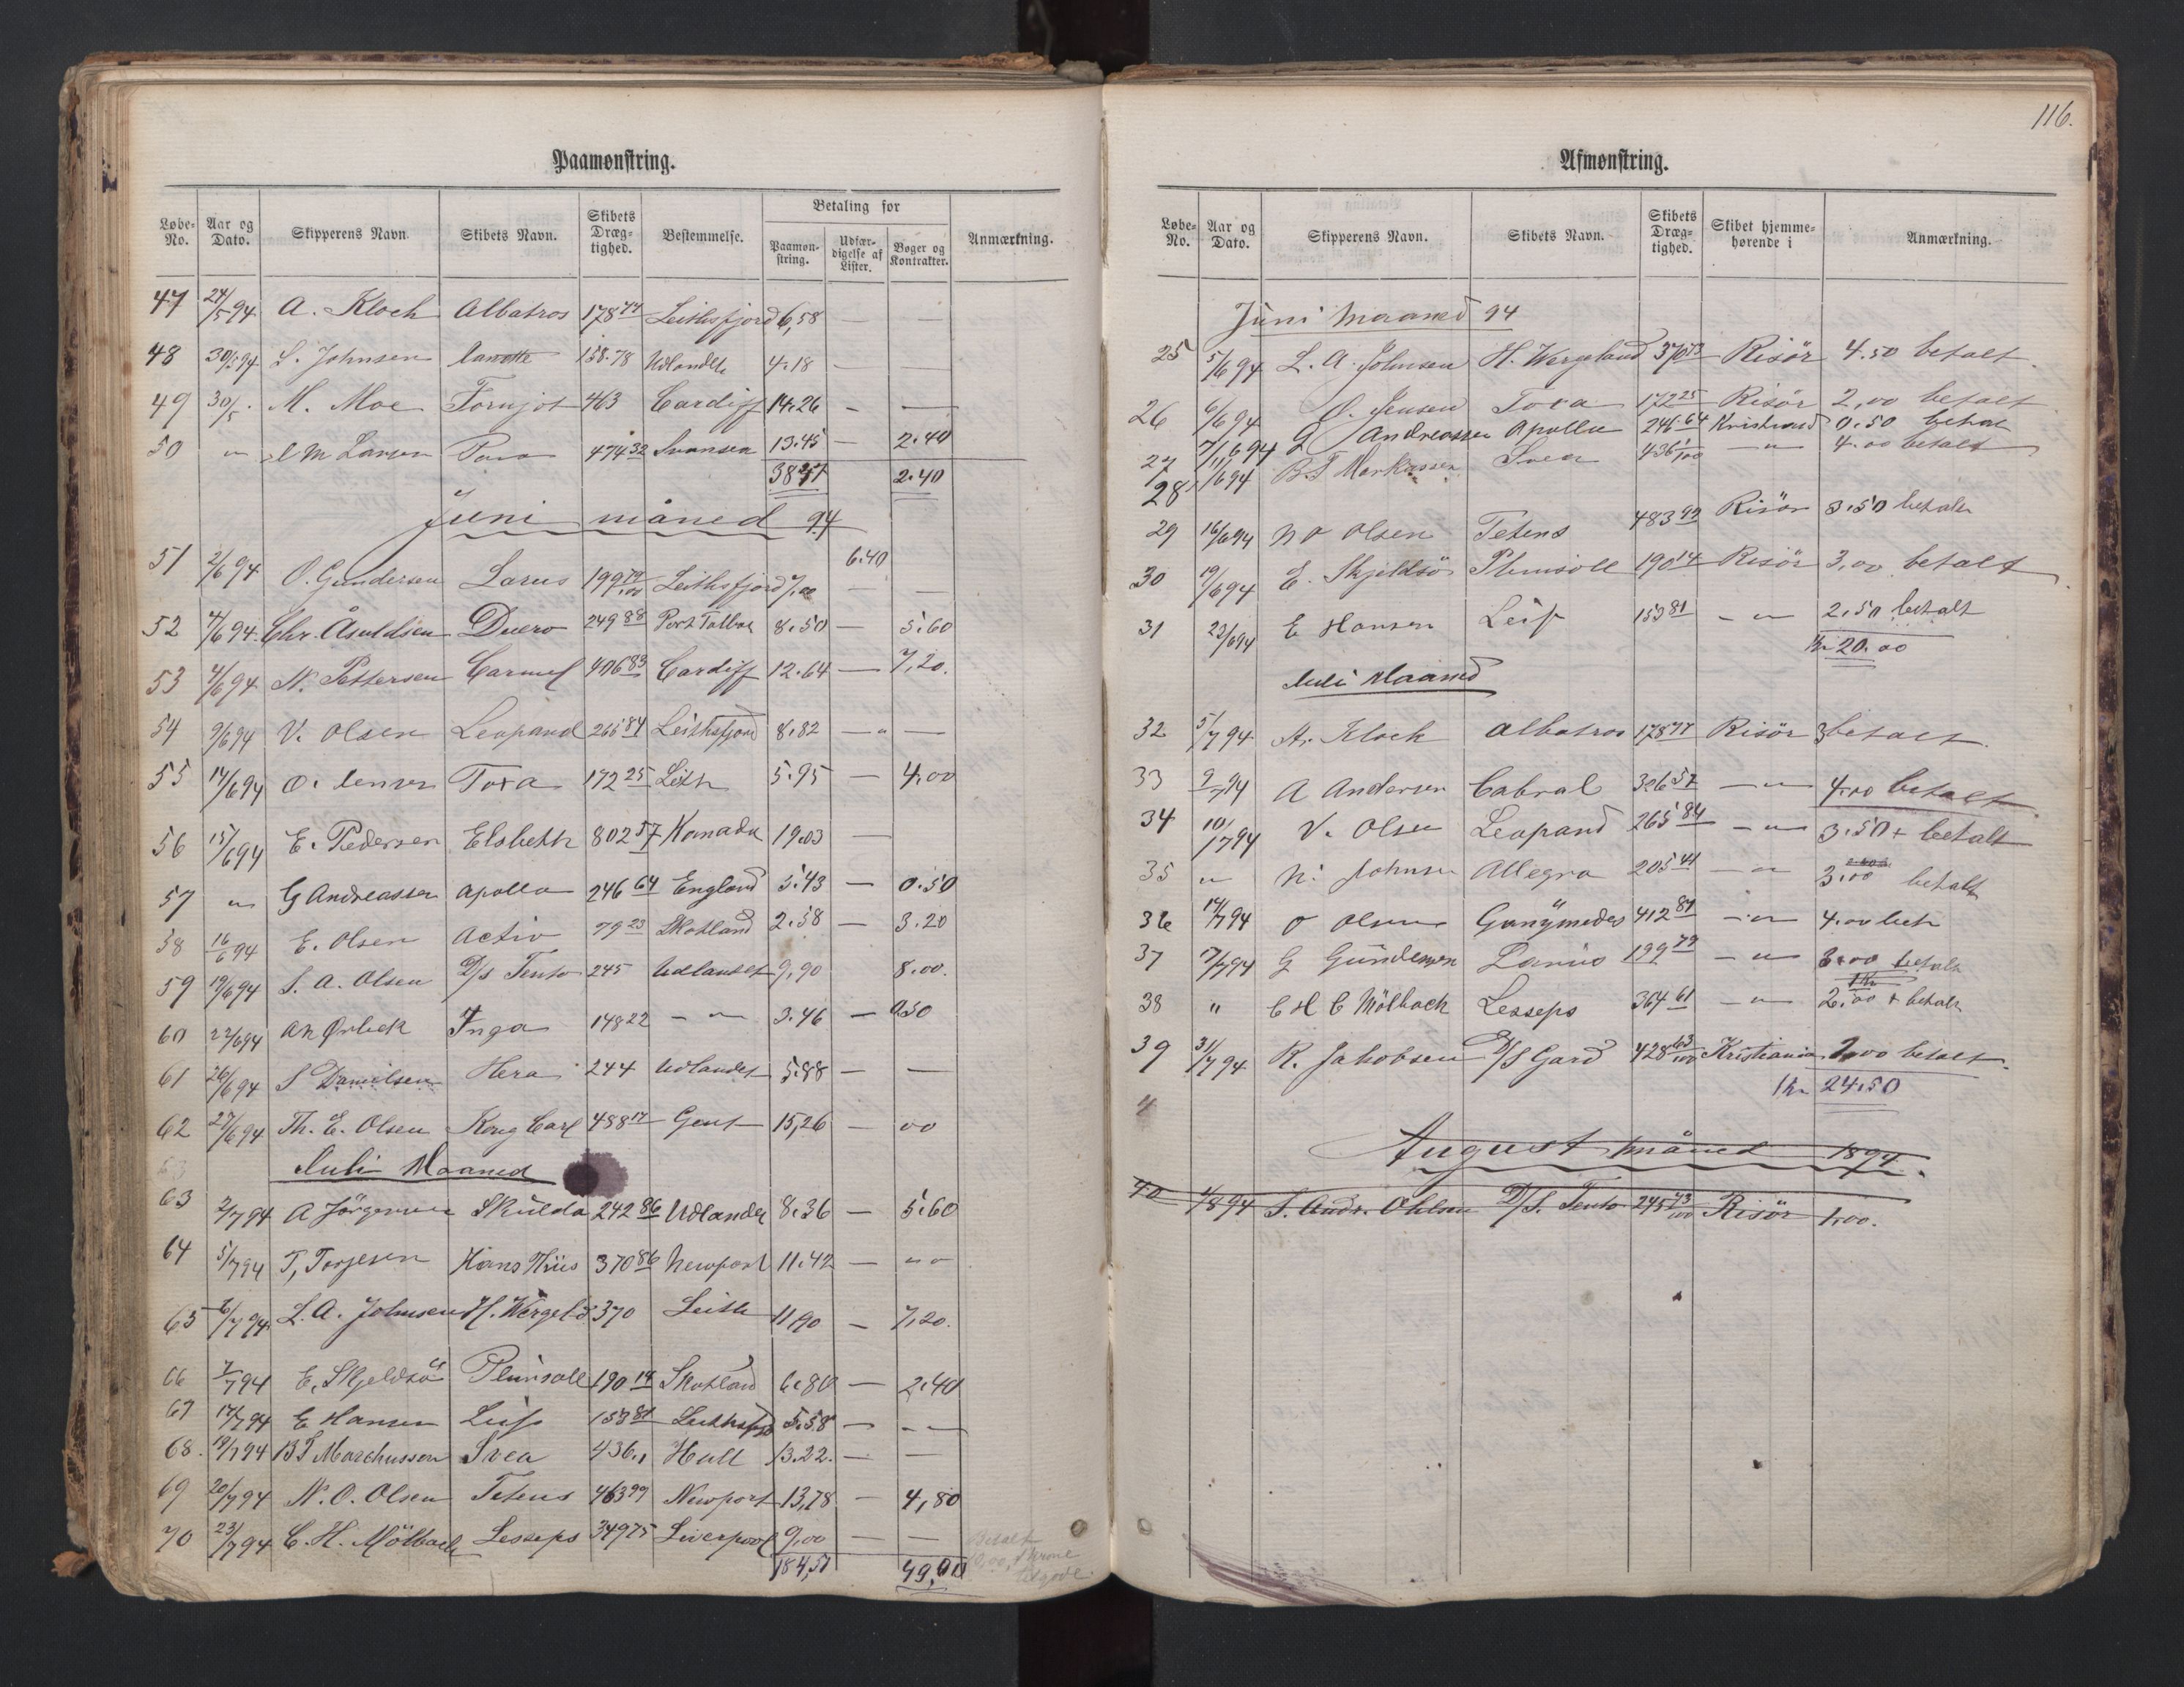 Paamønstring.
Løbe-No. Aar og Dato. Skipperens Navn. Skibets Navn. Skibets Dræg-tighed. Bestemmelse. Betaling for Paamøn-string. Udfær-digelse af Lister. Bøger og Kontrakter. Anmærkning.
47 24/5 94 A. Kloch Albatros 178 77 Leithsfjord 6,58 — —
48 30/5 94 L. Johnsen 158.78 Udlandet 4.18 — —
49 30/5 M. Moe Fornjot 463 Cardiff 14.26 — —
50 " M Larsen 474 32 Svansea 13.45 — 2.40
38 2.40
Juni måned 94
51 2/6 94 O. Gundersen Larus 199 79/100 Leithsfjord 7,00 6.40 —
52 4/6 94 Chr. Åsuldsen Duero 249 88 Port Talbot 8.50 — 5.60
53 4/6 94 N. Pettersen Carmel 406 83 Cardiff 12.64 — 7,20.
54 9/6 94 V. Olsen Leopard 265 84 Leithsfjord 8.82 — " —
55 14/6 94 O. Jensen Tora 172 25 Leith 5.95 — 4.00
56 15/6 94 E. Pedersen Elsbeth 802 57 Kanada 19.03 —
57 " G Andreassen Apollo 246 64 England 5.43 — 0.50
58 16/6 94 E. Olsen Activ 79 23 Skotland 2.58 — 3.20
59 19/6 94 S. A. Olsen D/s Tento 245 Udlandet 9,90 8.00.
60 22/6 94 Ørbeck Inga 148 22 - " 3.46 — 0.50
61 26/6 94 S Danielsen Hera 244 Udlandet 5.88 — —
62 27/6 94 Th. E. Olsen Kong Carl 488 17 Gent 15,26 — 00
Juli Maaned
63 2/7 94 A Jörgensen Skulda 242 86 Udlandet 8.36 — 5.60
64 5/7 94 T. Torjesen Hans Thiis 370 86 Newport 11.42 — " "
65 6/7 94 L. A. Johnsen H. Wergeld 370 Leith 11,90 — 7,20.
66 7/7 94 E. Skjeldsö Plimsoll 190 14 Skotland 6.80 — 2.40
67 17/7 94 E Hansen Leif 153 81 Leithsfjd 5.58 — - "
68. 19/7 94 B T Marchussen Svea 436.1 Hull 13.22. — —
69 20/7 94 N. O. Olsen Tetens 463 99 Newport 13,78 — 4,80
70 23/7 94 C. H. Mölbach Lesseps 349 75 Liverpool 9,00 — —
184,51 49,00
Betalt
116.
Afmønstring.
Løbe-No. Aar og Dato. Skipperens Navn. Skibets Navn. Skibets Dræg-tighed. Skibet hjemme-hørende i Anmærkning.
Juni Maaned 94
25 5/6 94 L. A. Johnsen H. Wergeland 370 73 Risör 4.50 betalt
26 6/6 94 O. Jensen Tora 172 25 Risör 2,00 betalt
27 7/6 94 G Andreassen Apollo 246 64 Kristiansd 0.50 betalt
28 11/6 94 B. T Markussen Svea 436 1/100 - " 4.00 betalt
29 16/6 94 N O Olsen Tetens 483 99 Risör 3.50 betalt
30 19/6 94 E. Skjeldsö Plimsoll 190 14 Risör 3,00 betalt
31 23/6 94 E Hansen Leif 153 81 - " 2.50 betalt
Kr 20.00
Juli Maaned
32 5/7 94 A. Kloch Albatros 178 77 Risör 3 betalt.
33 9/7 94 A Andersen Cabral 326 57 - " 4.00 betalt
34 10/7 94 V. Olsen Leopard 265 84 - " 3.50 + betalt
35 " N. Johnsen Allegro 205 41 - " 3.00 betalt
36 14/7 94 O Olsen Ganymedes 412 81 - " 4.00 bet
37 17/7 94 G Gundersen Larus 199 79 - " 3.00 betalt
38 " C H C Mölbach Lesseps 364 61 - " 2.00 + betalt
39 31/7 94 R. Jakobsen D/S Gard 428 63/100 Kristiania 2,00 betalt.
Kr 24.50
4
August måned 1894.
40 4/8 94 S. Andr. Ohlsen D/S. Tento 245 73/100 Risör 1.00.